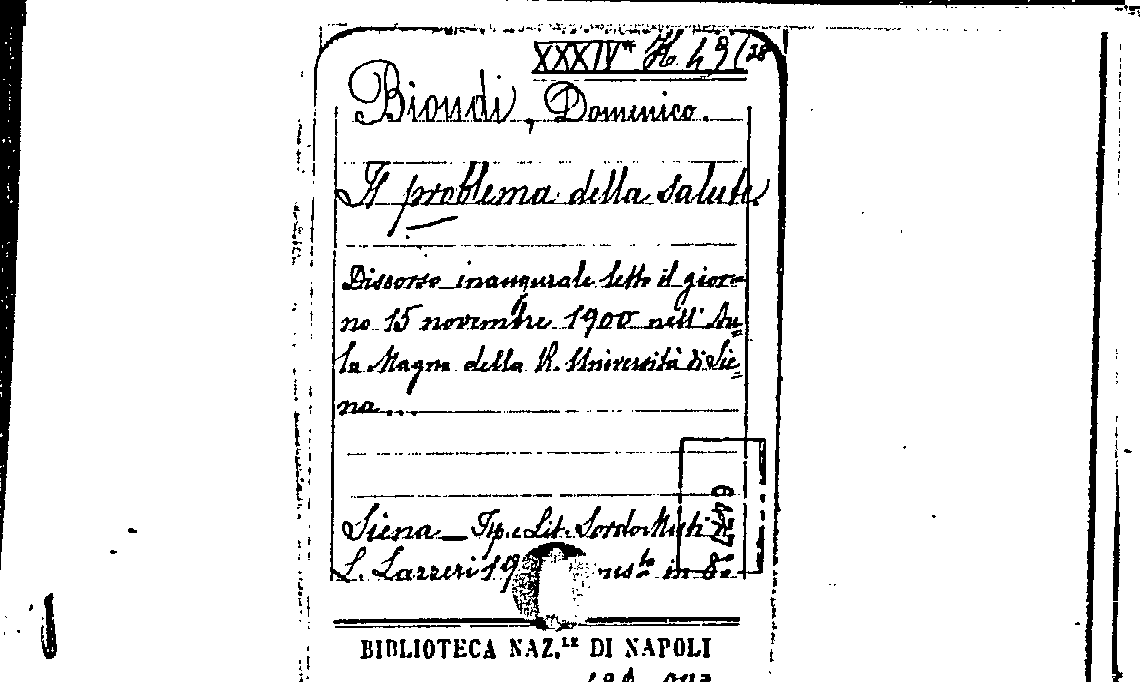 XXXIV* H. 49 (28
Biondi, Domenico.
Il problema della salute.
Discorso inaugurale letto il gior=
no 15 novembre 1900 nell' Au=
la Magna della R. Università di Sie=
na...
Siena – Tip. e Lit. Sordo-Muti di
L. Lazzeri 19 in 8º
6477
BIBLIOTECA NAZ.LE DI NAPOLI